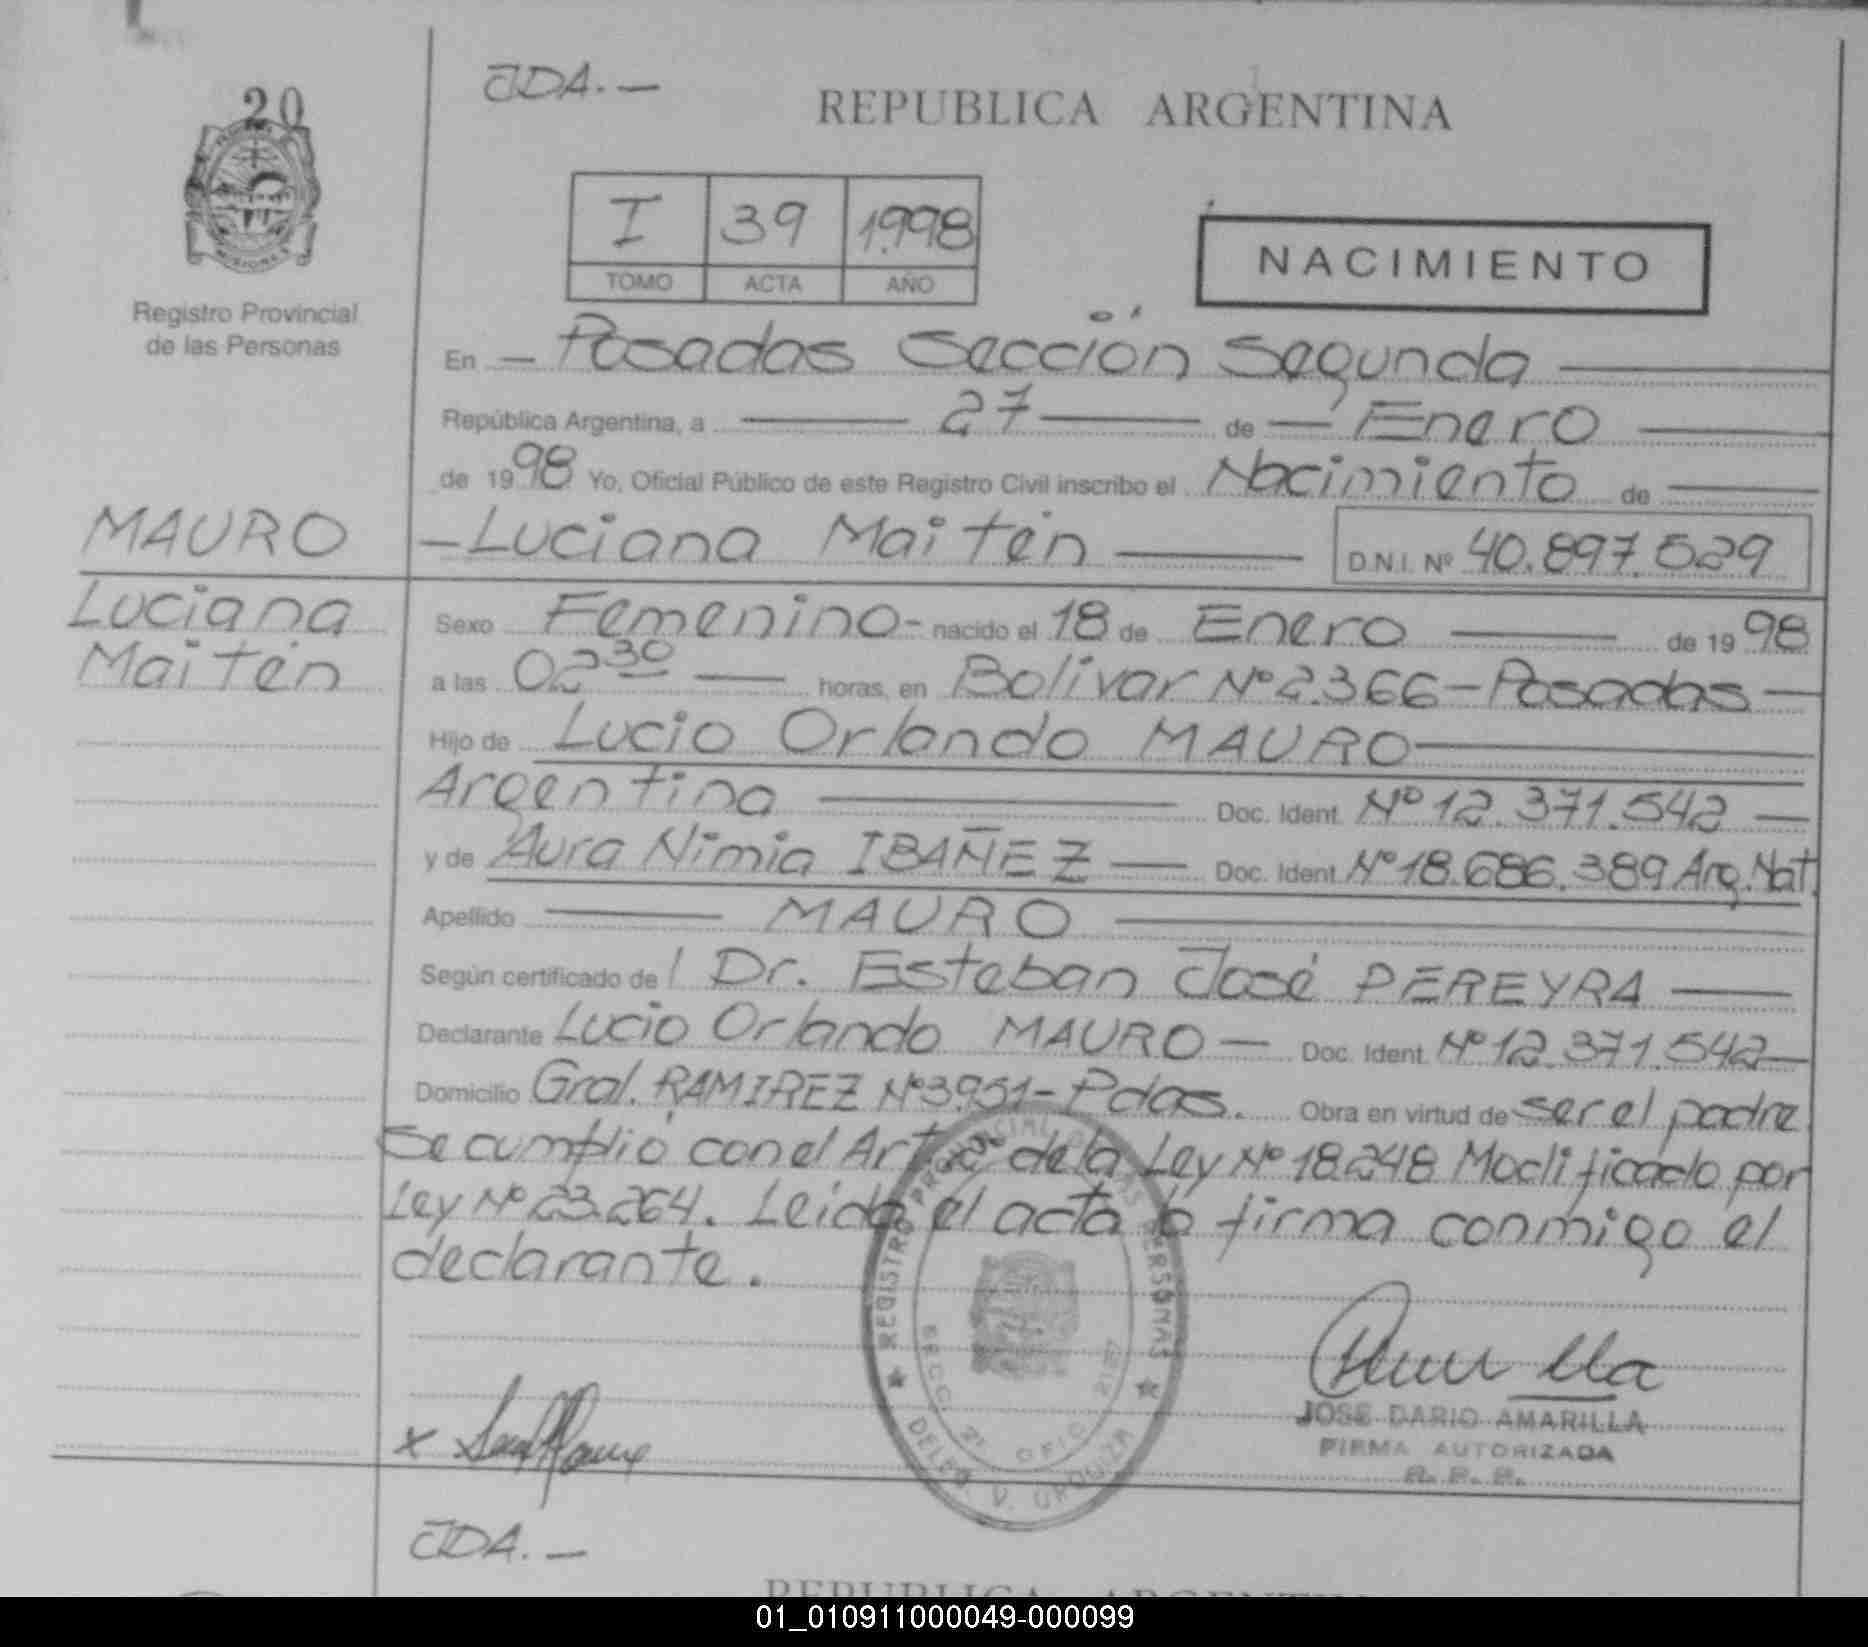 JDA.-
20
REPUBLICA ARGENTINA
MISIONES
I 39 1.998
TOMO ACTA AÑO
NACIMIENTO
Registro Provincial
de las Personas
En - Posadas Sección Segunda
República Argentina, a 27 de Enero
de 1998 Yo, Oficial Público de este Registro Civil inscribo el Nacimiento de
MAURO
- Luciana Maitén D.N.I. Nº 40.897.529
Luciana
Maitén
Sexo Femenino - nacido el 18 de Enero de 1998
a las 02 30 horas, en Bolívar Nº 2.366 - Posadas -
Hijo de Lucio Orlando MAURO
Argentina Doc. Ident. Nº 12.371.542 -
y de Aura Nimia IBAÑEZ - Doc. Ident. Nº 18.686.389 Arg. Nat.
Apellido MAURO
Según certificado de l Dr. Esteban José PEREYRA
Declarante Lucio Orlando MAURO - Doc. Ident. Nº 12.371.542 -
Domicilio Gral. RAMIREZ Nº 3.951 - Pdas. Obra en virtud de ser el padre
Se cumplió con el de la Ley Nº 18.248 Modificado por
Ley Nº 23.264. Leida el acta la firma conmigo el
declarante.
REGISTRO PROVINCIAL DE LAS PERSONAS
SECC. 2ª OFIC.
DELEG. V. URQUIZA
x
JOSE DARIO AMARILLA
FIRMA AUTORIZADA
R. P. P.
JDA.-
REPUBLICA ARGENTINA
01_010911000049-000099